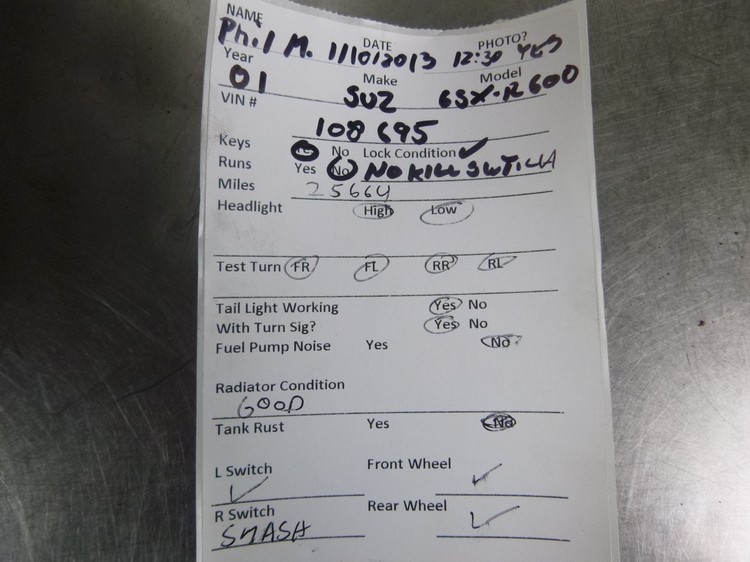 NAME DATE PHOTO?
Phil M. 11/10/2013 12:30 YES
Year Make Model
01 SUZ GSX-R600
VIN #
108695
Keys No Lock Condition ✓
Runs Yes No NO KILL SWTICH
Miles 25664
Headlight High Low
Test Turn FR FL RR RL
Tail Light Working Yes No
With Turn Sig? Yes No
Fuel Pump Noise Yes No
Radiator Condition
GOOD
Tank Rust Yes No
L Switch ✓ Front Wheel ✓
R Switch Rear Wheel ✓
SMASH